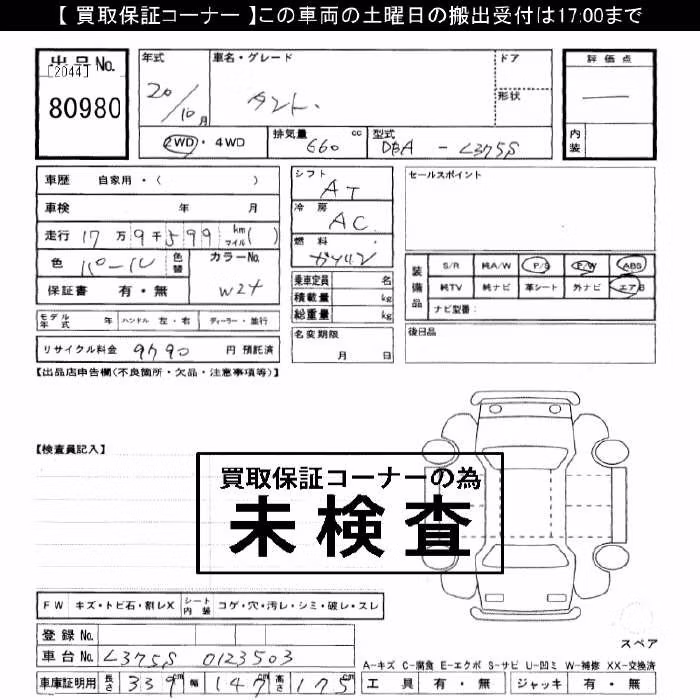 【 買取保証コーナー 】この車両の土曜日の搬出受付は17:00まで
出品No.
[2044]
80980
年式
20/10月
車名・グレード
タント.
ドア
形状
評価点
内装
2WD・4WD
排気量 660 cc
型式 DBA - L375S
車歴 自家用・( )
車検 年 月
走行 17万9千599 km マイル( )
色 パール 色替
カラーNo. W24
保証書 有・無
モデル年式 年 ハンドル 左・右 ディーラー・並行
リサイクル料金 9790 円 預託済
シフト AT
冷房 AC
燃料 ガソリン
乗車定員 名
積載量 kg
総重量 kg
名変期限
月 日
セールスポイント
装備品
S/R 純A/W P/S P/W ABS
純TV 純ナビ 革シート 外ナビ エアB
ナビ型番:
後日品
【出品店申告欄(不良箇所・欠品・注意事項等)】
【検査員記入】
買取保証コーナーの為
未検査
FW キズ・トビ石・割レX シート内装 コゲ・穴・汚レ・シミ・破レ・スレ
登録No.
車台No. L375S 0123503
車庫証明用 長さ 339cm 幅 147cm 高さ 175cm
スペア
A-キズ C-腐食 E-エクボ S-サビ U-凹ミ W-補修 XX-交換済
工具 有・無 ジャッキ 有・無